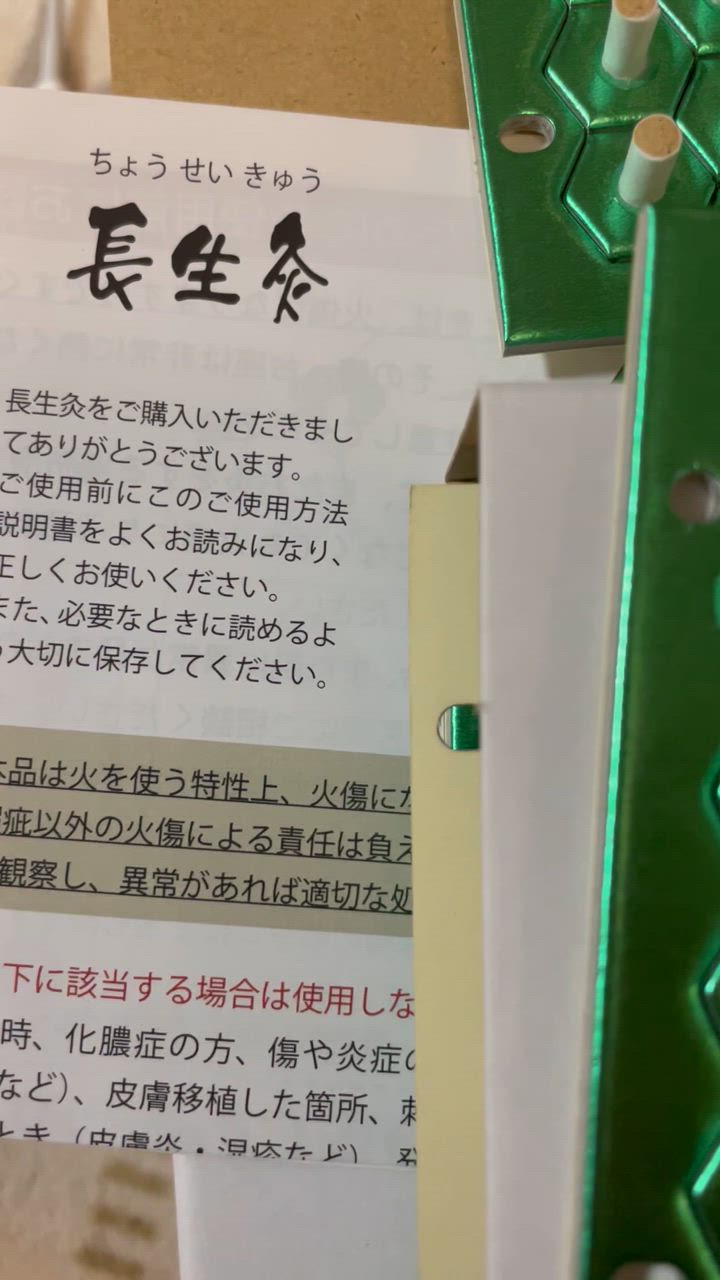 ちょう せい きゅう
長生灸
長生灸をご購入いただきまし
てありがとうございます。
ご使用前にこのご使用方法
説明書をよくお読みになり、
正しくお使いください。
また、必要なときに読めるよ
う大切に保存してください。
本品は火を使う特性上、火傷に
瑕疵以外の火傷による責任は負え
観察し、異常があれば適切な処
下に該当する場合は使用しな
時、化膿症の方、傷や炎症の
など）、皮膚移植した箇所、刺
とき（皮膚炎・湿疹など）、発